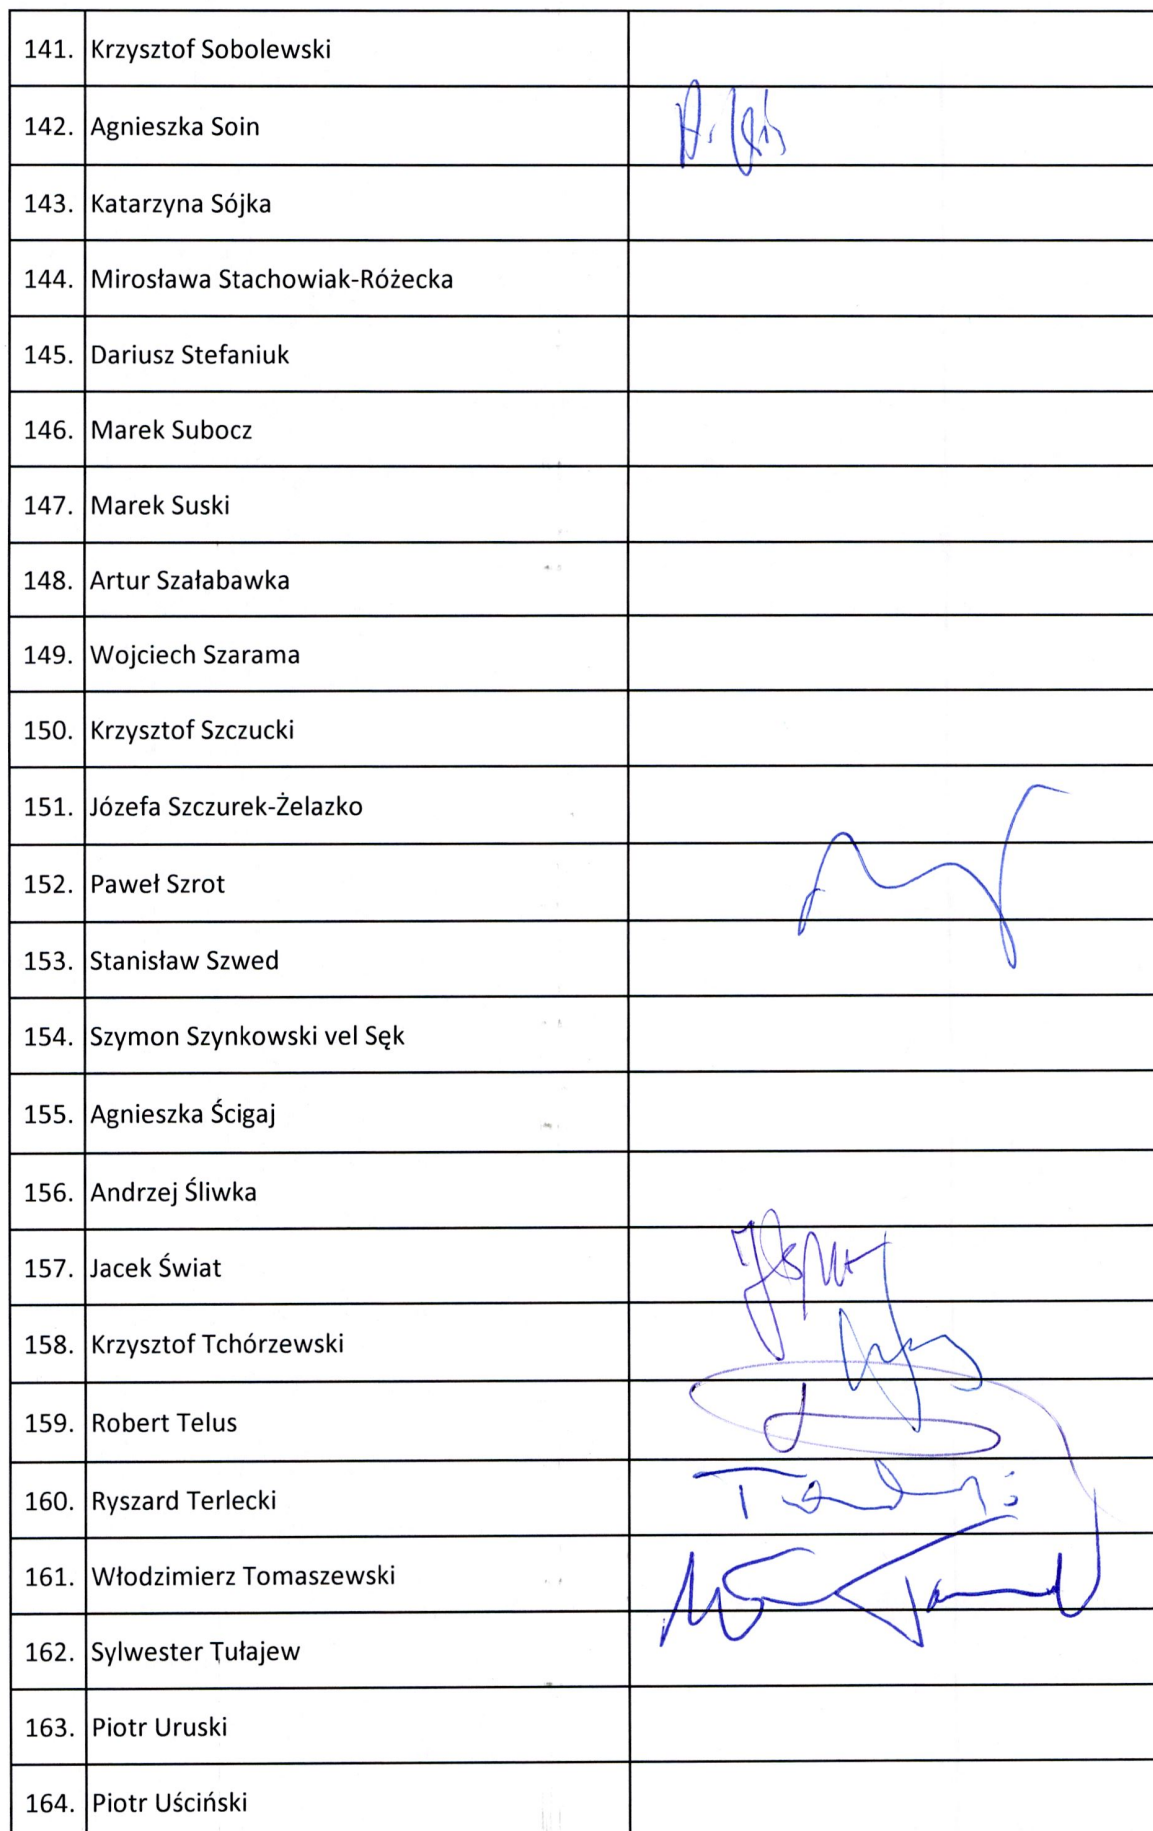 141. Krzysztof Sobolewski
142. Agnieszka Soin
143. Katarzyna Sójka
144. Mirosława Stachowiak-Różecka
145. Dariusz Stefaniuk
146. Marek Subocz
147. Marek Suski
148. Artur Szałabawka
149. Wojciech Szarama
150. Krzysztof Szczucki
151. Józefa Szczurek-Żelazko
152. Paweł Szrot
153. Stanisław Szwed
154. Szymon Szynkowski vel Sęk
155. Agnieszka Ścigaj
156. Andrzej Śliwka
157. Jacek Świat
158. Krzysztof Tchórzewski
159. Robert Telus
160. Ryszard Terlecki
161. Włodzimierz Tomaszewski
162. Sylwester Tułajew
163. Piotr Uruski
164. Piotr Uściński